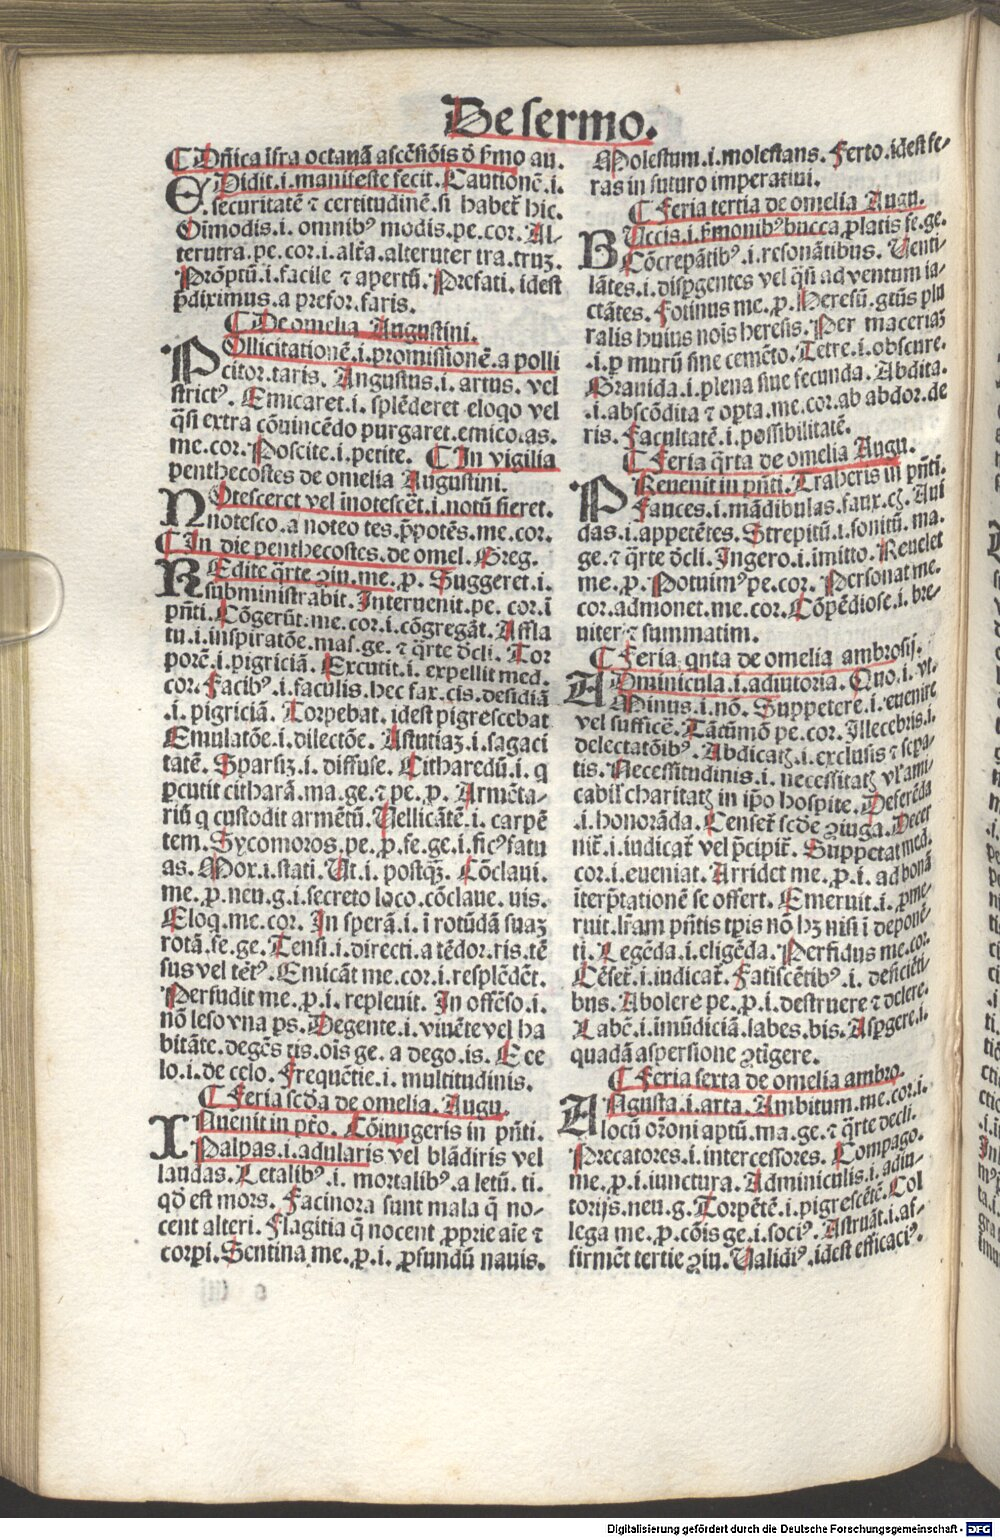 De sermo.
¶ Dñica ĩfra octauã ascẽsiõis ð s̃mo au.
E Didit .i. manifeste fecit. Cautionẽ .i.
securitatẽ ⁊ certitudinẽ. si haber̃ hic.
Oimodis .i. omnibꝰ modis. pe. cor. Al-
terutra. pe. cor .i. alt̃a. alteruter tra. truꝫ.
Prõptũ .i. facile ⁊ apertũ. Prefati. idest
p̃diximus. a prefor. faris.
¶ De omelia Augustini.
P Ollicitationẽ .i. promissionẽ. a polli
citor. taris. Angustus .i. artus. vel
strictꝰ. Emicaret .i. splẽderet eloqo vel
q̃si extra cõuincẽdo purgaret. emico. as.
me. cor. Poscite .i. petite. ¶ In vigilia
penthecostes de omelia Augustini.
N Otesceret vel inotescẽt .i. notũ fieret.
notesco. a noteo tes. p̃potẽs. me. cor.
¶ In die penthecostes. de omel. Greg.
R Edite q̃rte ꝯiu. me. ꝓ. Suggeret .i.
subministrabit. Interuenit. pe. cor .i
pñti. Cõgerũt. me. cor .i. cõgregãt. Affla
tu .i. inspiratõe. mas. ge. ⁊ q̃rte ðcli. Tor
porẽ .i. pigriciã. Excutit .i. expellit med.
cor. Facibꝰ .i. faculis. hec fax. cis. desidiã
.i. pigriciã. Torpebat. idest pigrescebat
Emulatõe .i. dilectõe. Astutiaꝫ .i. sagaci
tatẽ. Sparsiꝫ .i. diffuse. Citharedũ .i. q
ꝑcutit citharã. ma. ge. ⁊ pe. ꝓ. Armẽta-
riũ q custodit armẽtũ. Uellicãtẽ .i. carpẽ
tem. Sycomoros. pe. ꝓ. fe. ge .i. ficꝰ fatu
as. Mox .i. stati. Ut .i. postqꝫ. Cõclaui.
me. ꝓ. neu. g .i. secreto loco. cõclaue. uis.
Eloq. me. cor. In sperã .i. ĩ rotũdã suaꝫ
rotã. fe. ge. Tensi .i. directi. a tẽdor. ris. tẽ
sus vel tẽtꝰ. Emicãt me. cor .i. resplẽdẽt.
Perfudit me. ꝓ .i. repleuit. In offẽso .i.
nõ leso vna ps. Degente .i. viuẽte vel ha
bitãte. degẽs tis. oĩs ge. a dego. is. E ce
lo .i. de celo. Frequẽtie .i. multitudinis.
¶ Feria scða de omelia. Augu.
I Nuenit in pr̃o. Cõiungeris in pñti.
Palpas .i. adularis vel blãdiris vel
laudas. Letalibꝰ .i. mortalibꝰ. a letũ. ti.
qð est mors. Facinora sunt mala q̃ no-
cent alteri. Flagitia q̃ nocent ꝓprie aĩe ⁊
corpi. Sentina me. ꝓ .i. ꝓfundũ nauis.
Molestum .i. molestans. Ferto. idest fe-
ras in futuro imperatiui.
¶ Feria tertia de omelia Augu.
B Uccis .i. s̃monibꝰ bucca ꝓlatis fe. ge.
Cõcrepãtibꝰ .i. resonãtibus. Uenti-
lãtes .i. disꝑgentes vel q̃si ad ventum ia-
ctãtes. Fotinus me. ꝓ. Heresũ. gtũs plu
ralis huius nois heresis. Per maceriaꝫ
.i. ꝑ murũ sine cemẽto. Tetre .i. obscure.
Grauida .i. plena siue fecunda. Abdita.
.i. abscõdita ⁊ opta. me. cor. ab abdor. de
ris. Facultatẽ .i. possibilitatẽ.
¶ Feria q̃rta de omelia Augu.
P Reuenit in pñti. Traheris in pñti.
Fauces .i. mãdibulas. faux. cꝫ. Aui
das .i. appetẽtes. Strepitũ .i. sonitũ. ma.
ge. ⁊ q̃rte ðcli. Ingero .i. imitto. Reuelet
me. ꝓ. Potuimꝰ pe. cor. Personat me.
cor. admonet. me. cor. Cõpẽdiose .i. bre-
uiter ⁊ summatim.
¶ Feria qnta de omelia ambrosij.
A Dminicula .i. adiutoria. Quo .i. vt.
Minus .i. nõ. Suppetere .i. euenire
vel sufficẽ. Tãtũmõ pe. cor. Illecebris .i.
delectatõibꝰ. Abdicatꝫ .i. exclusis ⁊ sepa-
tis. Necessitudinis .i. necessitatꝫ vl̓ ami-
cabil̓ charitatꝫ in ip̃o hospite. Deferẽda
.i. honorãda. Censer̃ scðe ꝯiuga. Decer
nir̃ .i. iudicar̃ vel p̃cipir̃. Suppetat med.
cor .i. eueniat. Arridet me. ꝓ .i. ad bonã
iterp̃tationẽ se offert. Emeruit .i. ꝓme-
ruit. lr̃am pñtis tꝑis nõ hꝫ nisi ĩ deponẽ-
ti. Legẽda .i. eligẽda. Perfidus me. cor.
Cẽser̃ .i. iudicar̃. Fatiscẽtibꝰ .i. deficiẽti-
bus. Abolere pe. ꝓ .i. destruere ⁊ delere.
Labẽ .i. imũdiciã. labes. bis. Aspgere .i.
quadã aspersione ꝯtigere.
¶ Feria sexta de omelia ambro.
A Ngusta .i. arta. Ambitum. me. cor .i.
locũ or̃oni aptũ. ma. ge. ⁊ q̃rte decli.
Precatores .i. intercessores. Compago.
me. ꝓ .i. iunctura. Adminiculis .i. adiu-
torijs. neu. g. Torpẽtẽ .i. pigrescẽtẽ. Col
lega me. ꝓ. cõis ge .i. sociꝰ. Astruãt .i. af-
firmẽt tertie ꝯiu. Ualidiꝰ. idest efficaciꝰ.
Digitalisierung gefördert durch die Deutsche Forschungsgemeinschaft - DFG